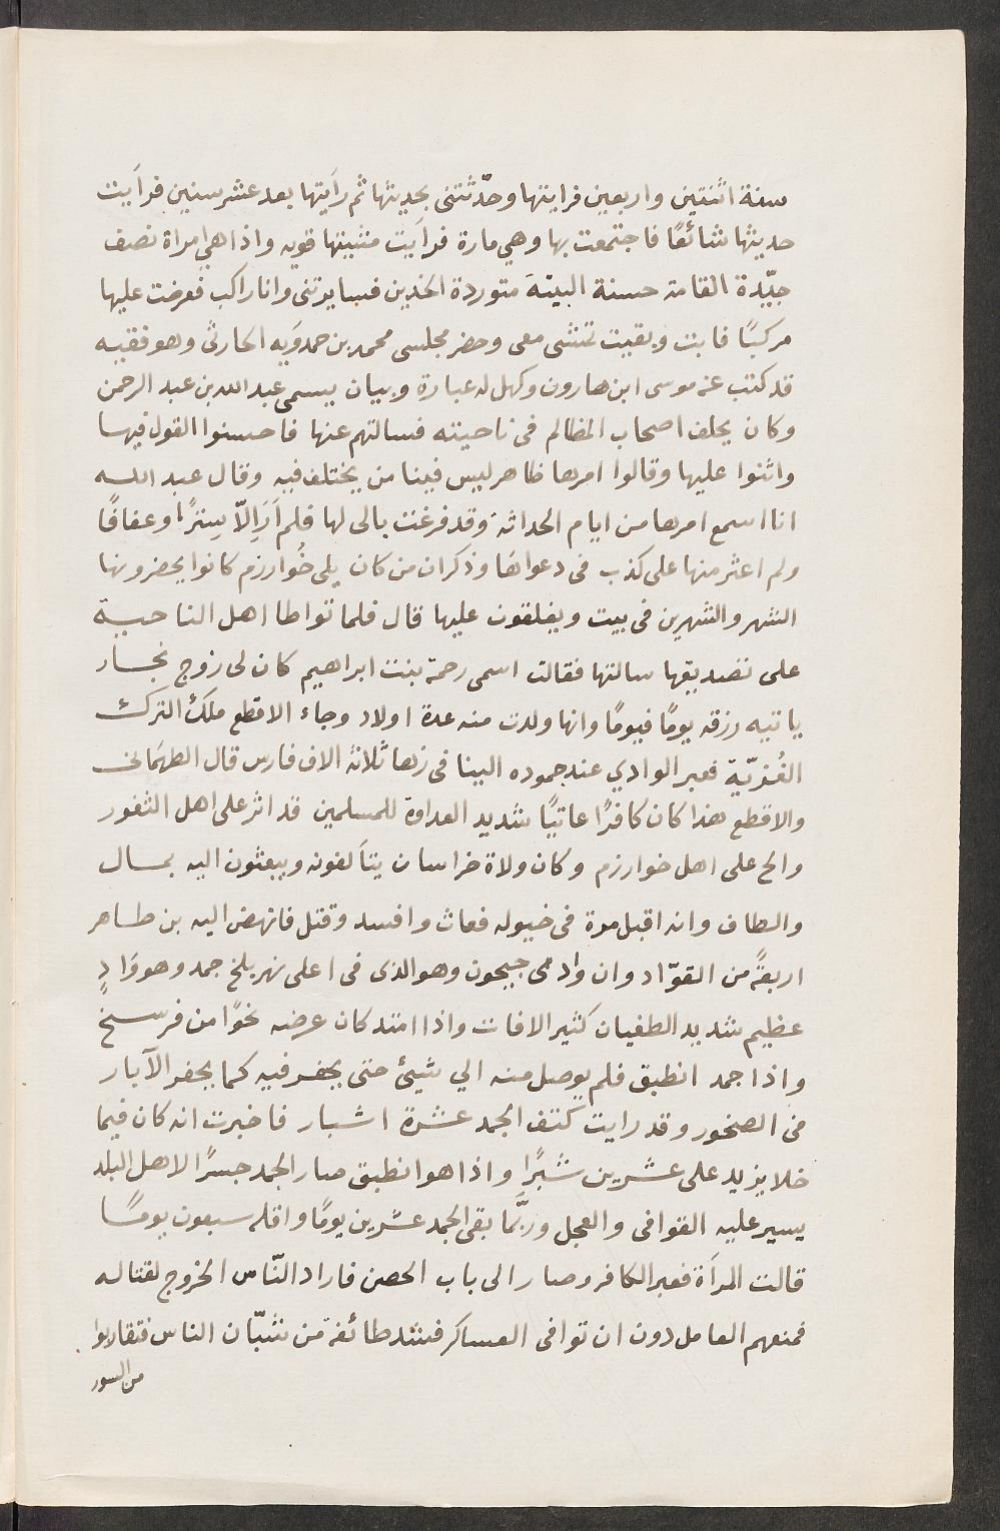 سنة اثنتين واربعين فرايتها وحدّثتنى بحديثها ثم رأيتها بعد عشر سنين فرأيت
حديثها شائعًا فاجتمعت بها وهي مارة فرأيت مشيتها قويه واذا هي امراة نصف
جيّدة القامة حسنة البينة متوردة الخدين فسايرتنى وانا راكب فعرضت عليها
مركبًا فابت وبقيت تمشى معى وحضر مجلسى محمد بن حمدويه الحارثى وهو فقيه
قد كتب عنه موسى ابن هارون وكهل له عبارة وبيان يسمى عبد الله بن عبد الرحمن
وكان يحلف اصحاب المظالم فى ناحيته فسالتهم عنها فاحسنوا القول فيها
واثنوا عليها وقالوا امرها ظاهر ليس فينا من يختلف فيه وقال عبد الله
انا اسمع امرها من ايام الحداثة وقد فرغت بالى لها فلم أرَ إلّا سترًا وعفافًا
ولم اعثر منها على كذب فى دعواها وذكر ان من كان يلى خُوارزم كانوا يحضرونها
الشهر والشهرين فى بيت ويغلقون عليها قال فلما تواطا اهل الناحية
على تصديقها سالتها فقالت اسمى رحمة بنت ابراهيم كان لى زوج نجار
ياتيه رزقه يومًا فيومًا وانها ولدت منه عدة اولاد وجاء الاقطع ملك الترك
الغُزيّة فعبر الوادي عند جموده الينا فى زها ثلاثة الاف فارس قال الطهمانى
والاقطع هذا كان كافرًا عاتيًا شديد العداوة للمسلمين قد اثر على اهل الثغور
والح على اهل خوارزم وكان ولاة خراسان يتألفونه ويبعثون اليه بمال
والطاف وانه اقبل مرة فى خيوله فعاث وافسد وقتل فانهض اليه بن طاهر
اربعةً من القوّاد وان وادى جيجون وهو الذى فى اعلى نهر بلخ جمد وهو وَادٍ
عظيم شديد الطغيان كثير الافات واذا امتد كان عرضه نحوًا من فرسخٍ
واذا جمد انطبق فلم يوصل منه الي شيئ حتى يحفر فيه كما يحفر الآبار
فى الصخور وقد رايت كتف الجمد عشرة اشبار فاخبرت انه كان فيما
خلا يزيد على عشرين شبرًا واذا هو انطبق صار الجمد جسرًا لاهل البلد
يسير عليه القوافى والعجل وربَّما بقى الجمد عشرين يومًا واقله سبعون يومًا
قالت المرأة فعبر الكافر وصار الى باب الحصن فاراد النّاس الخروج لقتاله
فمنعهم العامل دون ان توافى العساكر فشد طائفة من شبّان الناس فتقاربوا
من السور